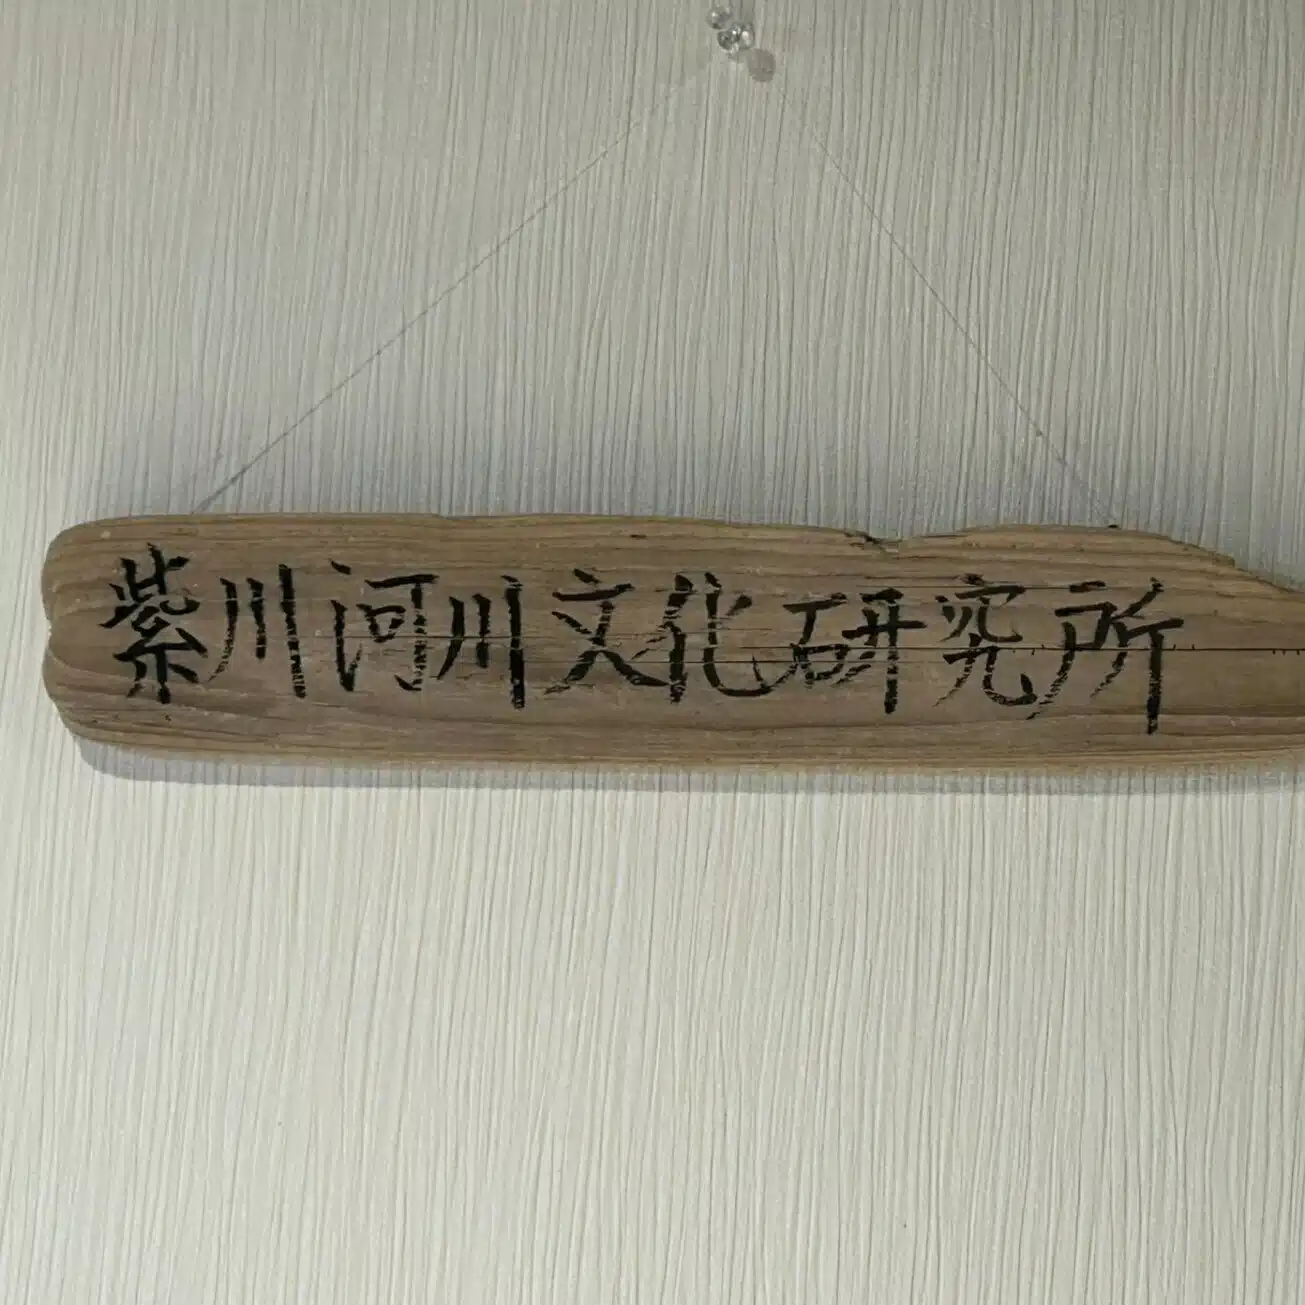 紫川河川文化研究所